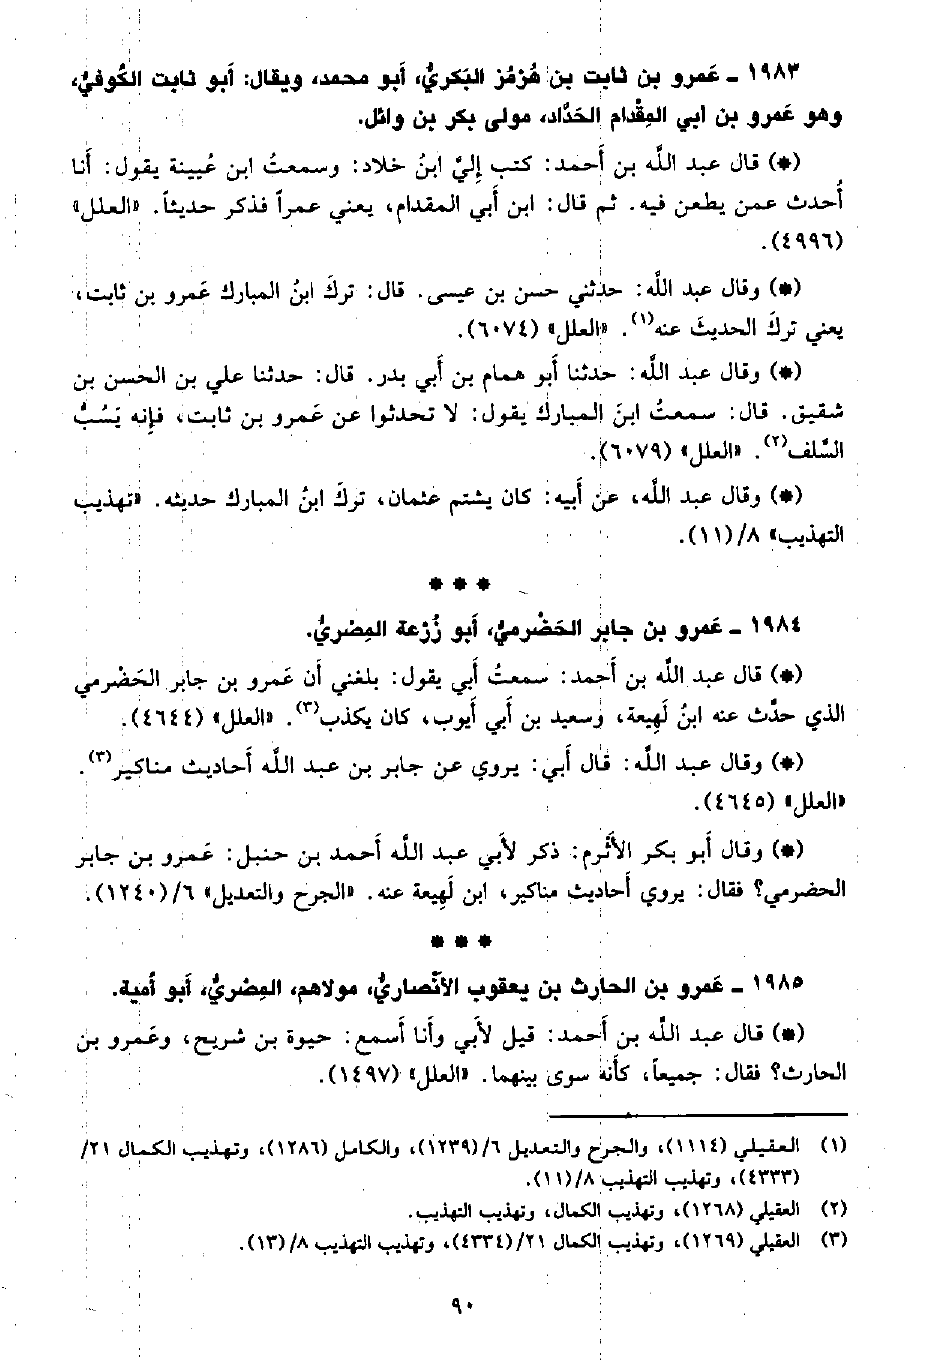 ١٩٨٣ ـ عَمرو بن ثابت بن هُرْمُز البَكريُّ، أبو محمد، ويقال: أبو ثابت الكُوفيُّ،
وهو عَمرو بن ابي المِقْدام الحَدَّاد، مولى بكر بن وائل.
(*) قال عبد اللَّه بن أحمد: كتب إليَّ ابنُ خلاد: وسمعتُ ابن عُيينة يقول: أنا
أُحدث عمن يطعن فيه. ثم قال: ابن أبي المقدام، يعني عمراً فذكر حديثاً. «العلل»
(٤٩٩٦).
(*) وقال عبد اللَّه: حدثني حسن بن عيسى. قال: تركَ ابنُ المبارك عَمرو بن ثابت،
يعني تركَ الحديثَ عنه(١). «العلل» (٦٠٧٤).
(*) وقال عبد اللَّه: حدثنا أبو همام بن أبي بدر. قال: حدثنا علي بن الحسن بن
شقيق. قال: سمعتُ ابنَ المبارك يقول: لا تحدثوا عن عَمرو بن ثابت، فإنه يَسُبُّ
السَّلف(٢). «العلل» (٦٠٧٩).
(*) وقال عبد اللَّه، عن أبيه: كان يشتم عثمان، تركَ ابنُ المبارك حديثه. «تهذيب
التهذيب» ٨/(١١).
* * *
١٩٨٤ ـ عَمرو بن جابر الحَضْرميُّ، أبو زُرْعة المِصْريُّ.
(*) قال عبد اللَّه بن أحمد: سمعتُ أبي يقول: بلغني أن عَمرو بن جابر الحَضرمي
الذي حدَّث عنه ابنُ لَهِيعة، وسعيد بن أبي أيوب، كان يكذب(٣). «العلل» (٤٦٤٤).
(*) وقال عبد اللَّه: قال أبي: يروي عن جابر بن عبد اللَّه أحاديث مناكير(٣).
«العلل» (٤٦٤٥).
(*) وقال أبو بكر الأثرم: ذكر لأبي عبد اللَّه أحمد بن حنبل: عَمرو بن جابر
الحضرمي؟ فقال: يروي أحاديث مناكير، ابن لَهِيعة عنه. «الجرح والتعديل» ٦/(١٢٤٠).
* * *
١٩٨٥ ـ عَمرو بن الحارث بن يعقوب الأنْصاريُّ، مولاهم، المِصْريُّ، أبو أُمية.
(*) قال عبد اللَّه بن أحمد: قيل لأبي وأنا أسمع: حيوة بن شريح، وعَمرو بن
الحارث؟ فقال: جميعاً، كأنه سوى بينهما. «العلل» (١٤٩٧).
(١) العقيلي (١١١٤)، والجرح والتعديل ٦/(١٢٣٩)، والكامل (١٢٨٦)، وتهذيب الكمال ٢١/
(٤٣٣٣)، وتهذيب التهذيب ٨/(١١).
(٢) العقيلي (١٢٦٨)، وتهذيب الكمال، وتهذيب التهذيب.
(٣) العقيلي (١٢٦٩)، وتهذيب الكمال ٢١/(٤٣٣٤)، وتهذيب التهذيب ٨/(١٣).
٩٠